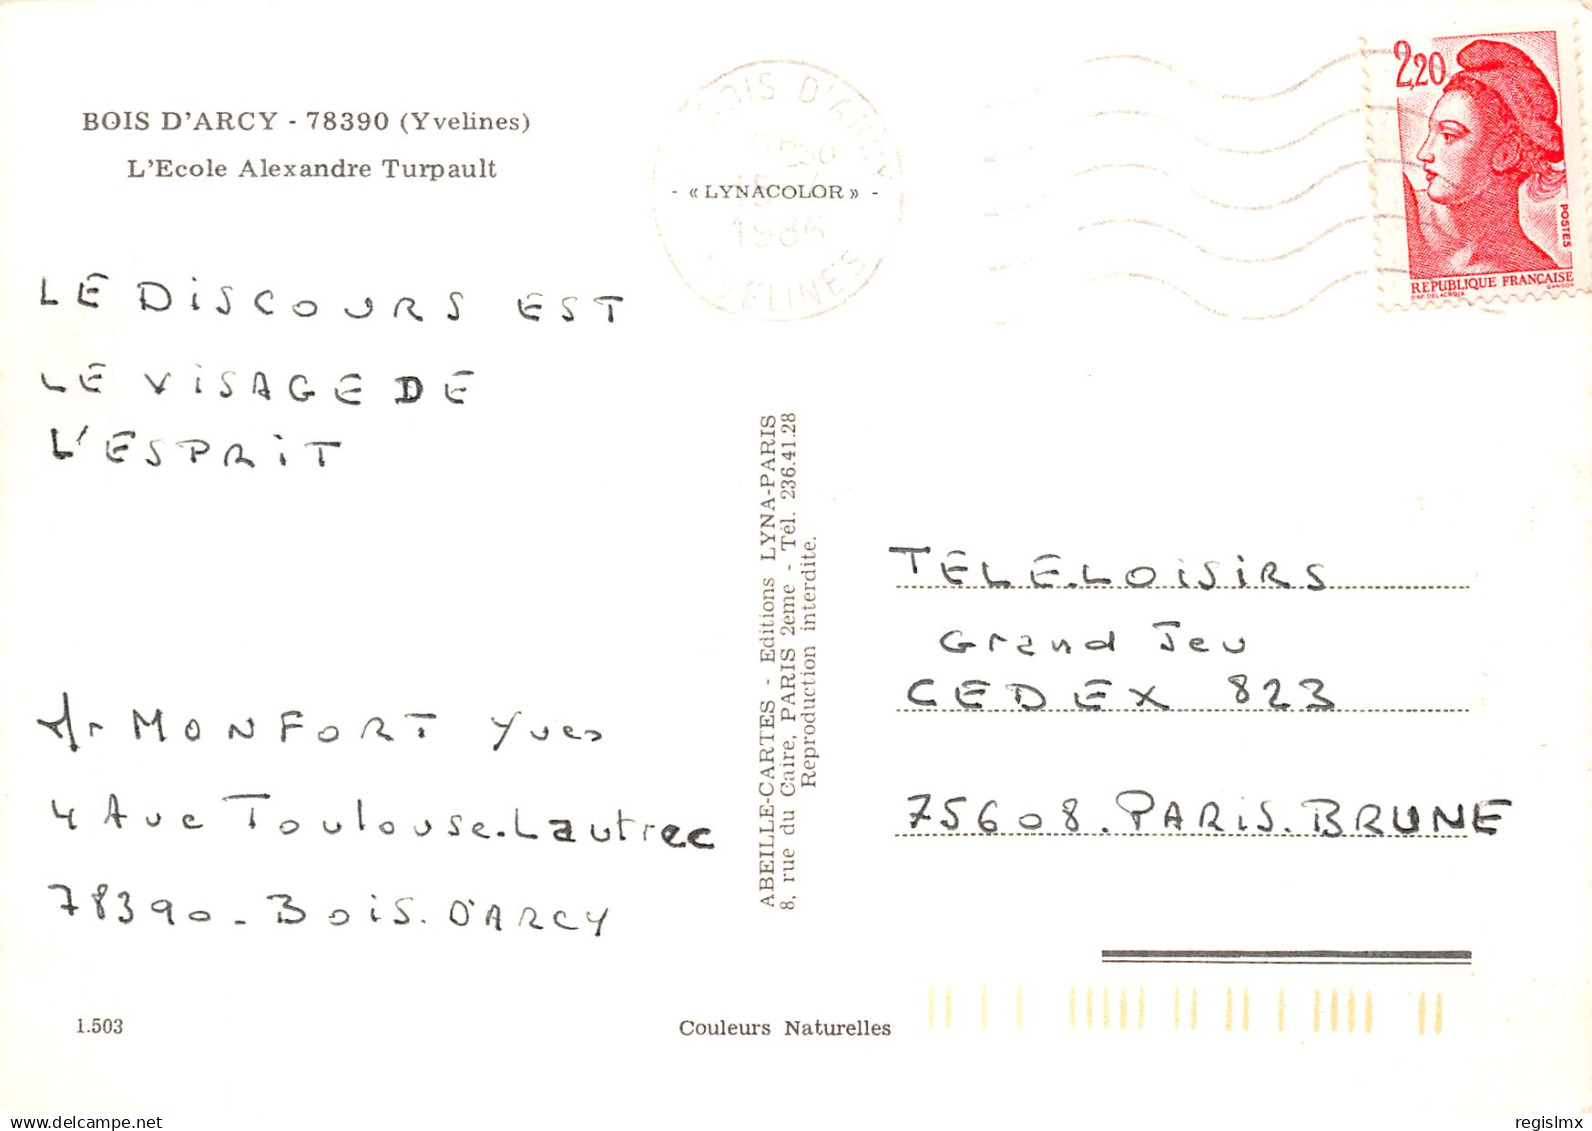 BOIS D'ARCY - 78390 (Yvelines)
L'Ecole Alexandre Turpault
BOIS D'ARCY
1986
YVELINES
- « LYNACOLOR » -
2,20
POSTES
RÉPUBLIQUE FRANÇAISE
D'AP. DELACROIX
GANDON
LE DISCOURS EST
LE VISAGE DE
L'ESPRIT
Mr MONFORT Yves
4 Ave Toulouse.Lautrec
78390 - BOIS. D'ARCY
ABEILLE-CARTES - Editions LYNA-PARIS
8, rue du Caire, PARIS 2eme - Tél. 236.41.28
Reproduction interdite.
TELE.LOISIRS
Grand Jeu
CEDEX 823
75608. PARIS. BRUNE
1.503
Couleurs Naturelles
www.delcampe.net
regislmx